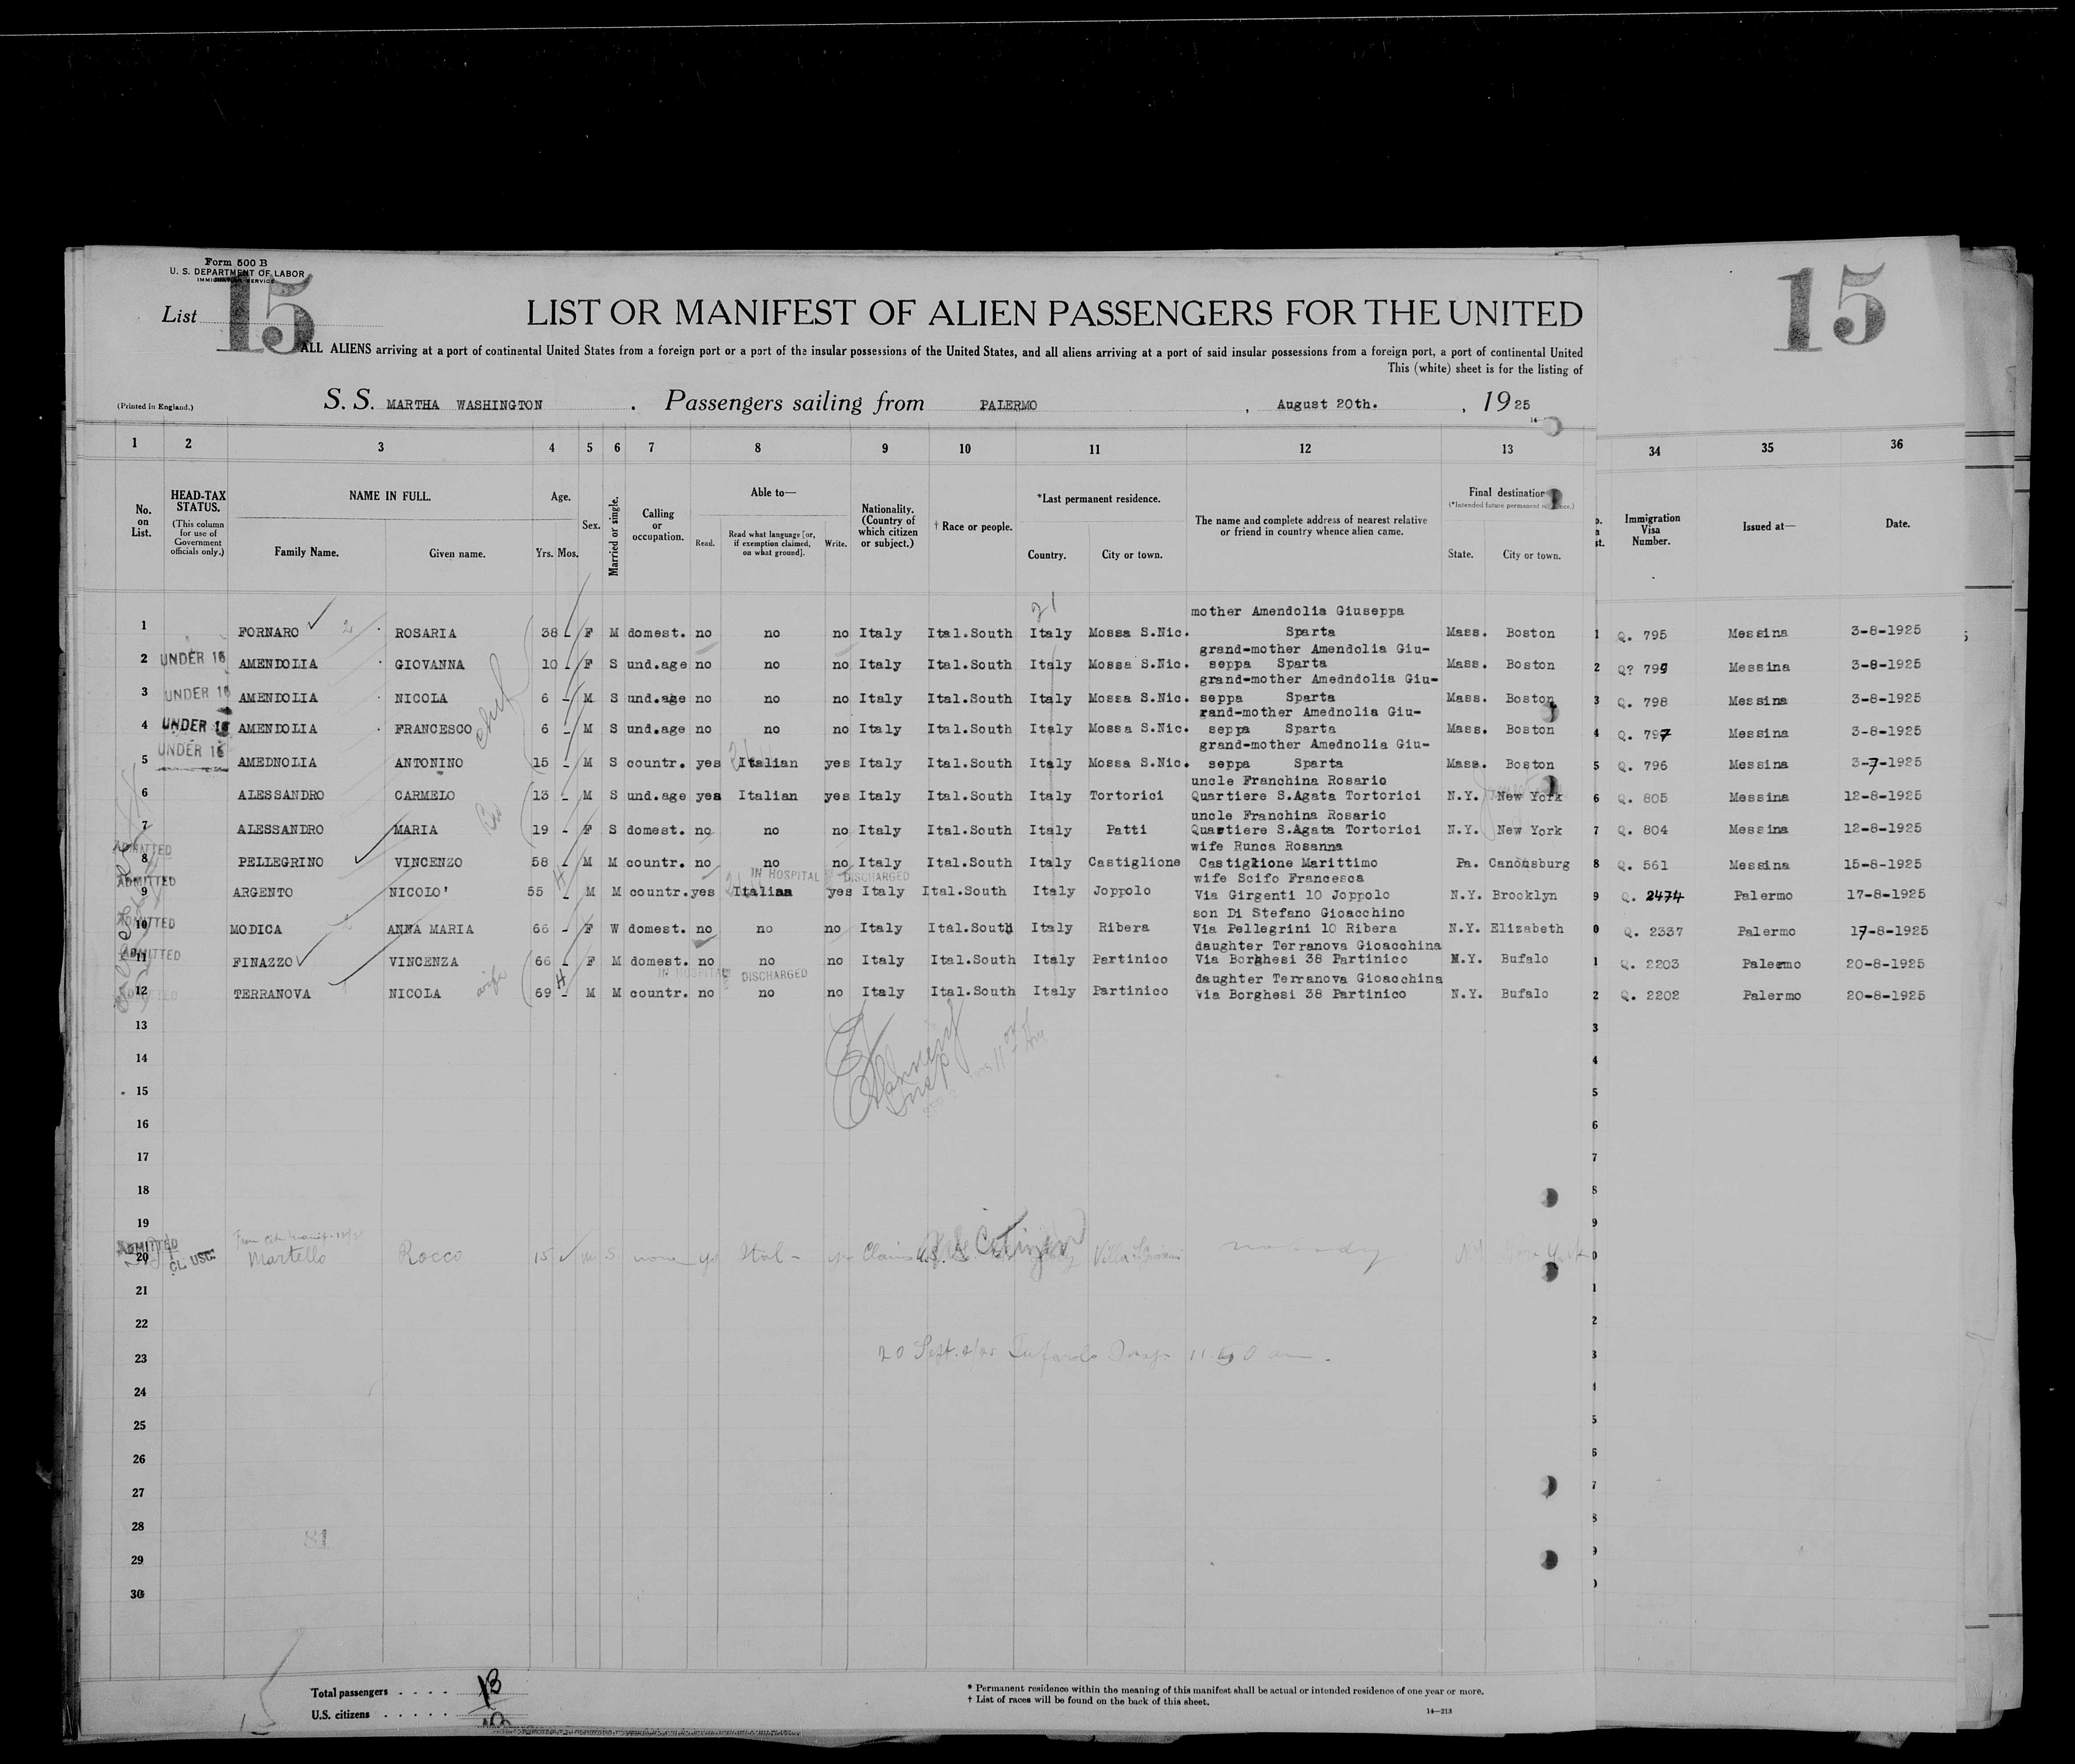 Form 500 B
U. S. DEPARTMENT OF LABOR
IMMIGRATION SERVICE
List 15
15
LIST OR MANIFEST OF ALIEN PASSENGERS FOR THE UNITED
ALL ALIENS arriving at a port of continental United States from a foreign port or a port of the insular possessions of the United States, and all aliens arriving at a port of said insular possessions from a foreign port, a port of continental United
This (white) sheet is for the listing of
(Printed in England.) S. S. MARTHA WASHINGTON . Passengers sailing from PALERMO , August 20th. , 1925
14-
1 2 3 4 5 6 7 8 9 10 11 12 13 34 35 36
No. on List.
HEAD-TAX STATUS.
(This column for use of Government officials only.)
NAME IN FULL.
Family Name. Given name.
Age.
Yrs. Mos.
Sex.
Married or single.
Calling or occupation.
Able to—
Read. Read what language [or, if exemption claimed, on what ground]. Write.
Nationality. (Country of which citizen or subject.)
† Race or people.
*Last permanent residence.
Country. City or town.
The name and complete address of nearest relative or friend in country whence alien came.
Final destination
(*Intended future permanent residence.)
State. City or town.
Immigration Visa Number.
Issued at—
Date.
21
mother Amendolia Giuseppa
1 FORNARO ROSARIA 38 - F M domest. no no no Italy Ital.South Italy Mossa S.Nic. Sparta Mass. Boston 1 Q. 795 Messina 3-8-1925
grand-mother Amendolia Giu-
2 UNDER 16 AMENDOLIA GIOVANNA 10 - F S und.age no no no Italy Ital.South Italy Mossa S.Nic. seppa Sparta Mass. Boston 2 Q? 799 Messina 3-8-1925
grand-mother Amedndolia Giu-
3 UNDER 16 AMENDOLIA NICOLA 6 - M S und.age no no no Italy Ital.South Italy Mossa S.Nic. seppa Sparta Mass. Boston 3 Q. 798 Messina 3-8-1925
rand-mother Amednolia Giu-
4 UNDER 16 AMENDOLIA FRANCESCO 6 - M S und.age no no no Italy Ital.South Italy Mossa S.Nic. seppa Sparta Mass. Boston 4 Q. 797 Messina 3-8-1925
grand-mother Amednolia Giu-
5 UNDER 16 AMEDNOLIA ANTONINO 15 - M S countr. yes Italian yes Italy Ital.South Italy Mossa S.Nic. seppa Sparta Mass. Boston 5 Q. 796 Messina 3-7-1925
uncle Franchina Rosario
6 ALESSANDRO CARMELO 13 - M S und.age yes Italian yes Italy Ital.South Italy Tortorici Quartiere S.Agata Tortorici N.Y. New York 6 Q. 805 Messina 12-8-1925
uncle Franchina Rosario
7 ALESSANDRO MARIA 19 - F S domest. no no no Italy Ital.South Italy Patti Quartiere S.Agata Tortorici N.Y. New York 7 Q. 804 Messina 12-8-1925
wife Runca Rosanna
ADMITTED
8 PELLEGRINO VINCENZO 58 - M M countr. no no no Italy Ital.South Italy Castiglione Castiglione Marittimo Pa. Canonsburg 8 Q. 561 Messina 15-8-1925
IN HOSPITAL DISCHARGED
wife Scifo Francesca
ADMITTED
9 ARGENTO NICOLO' 55 - M M countr. yes Italian yes Italy Ital.South Italy Joppolo Via Girgenti 10 Joppolo N.Y. Brooklyn 9 Q. 2474 Palermo 17-8-1925
son Di Stefano Gioacchino
ADMITTED
10 MODICA ANNA MARIA 66 - F W domest. no no no Italy Ital.South Italy Ribera Via Pellegrini 10 Ribera N.Y. Elizabeth 0 Q. 2337 Palermo 17-8-1925
daughter Terranova Gioacchina
ADMITTED
11 FINAZZO VINCENZA 66 - F M domest. no no no Italy Ital.South Italy Partinico Via Borghesi 38 Partinico N.Y. Bufalo 1 Q. 2203 Palermo 20-8-1925
IN HOSPITAL DISCHARGED
daughter Terranova Gioacchina
12 TERRANOVA NICOLA wife 69 - M M countr. no no no Italy Ital.South Italy Partinico Via Borghesi 38 Partinico N.Y. Bufalo 2 Q. 2202 Palermo 20-8-1925
13 3
14 4
15 5
16 6
17 7
18 8
19 9
ADMITTED
20 CL. USC. Martello Rocco 15 M S none yes Ital - Claims U.S. Citizen nobody N.Y. New York 0
21 1
22 2
23 20 Sept. Insp. 11 am. 3
24 4
25 5
26 6
27 7
28 8
81
29 9
30 0
Total passengers . . . .
U.S. citizens . . . . .
* Permanent residence within the meaning of this manifest shall be actual or intended residence of one year or more.
† List of races will be found on the back of this sheet.
14—213